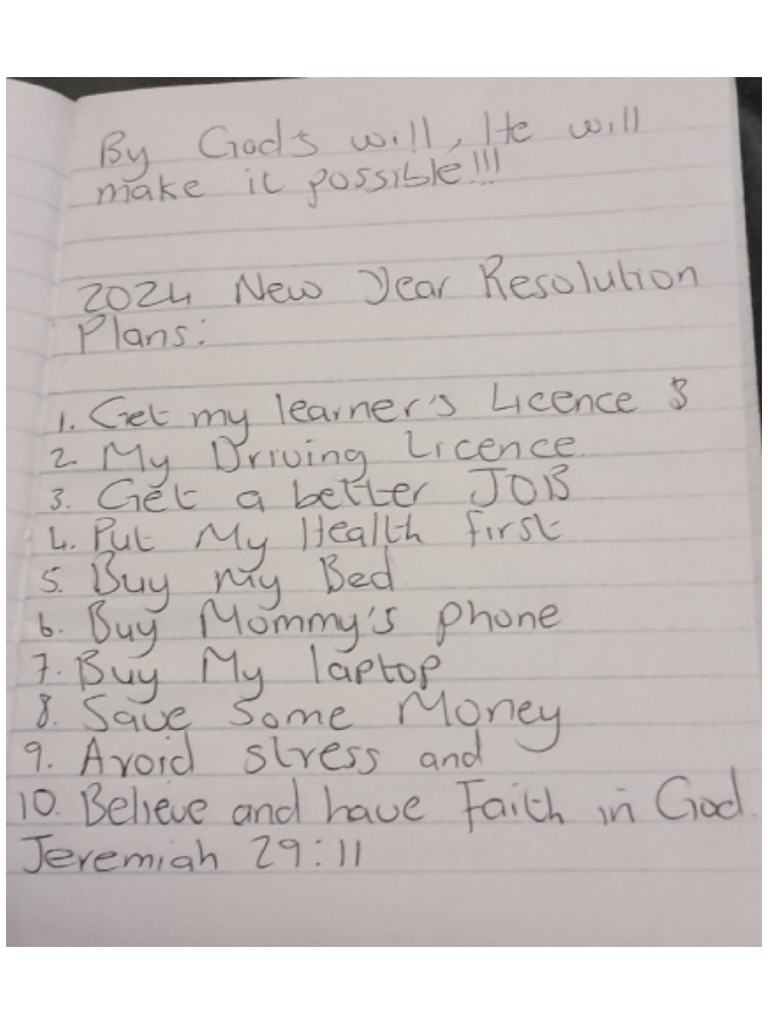 By God's will, He will
make it possible!!!
2024 New Year Resolution
Plans:
1. Get my learner's Licence &
2. My Driving Licence
3. Get a better JOB
4. Put My Health first
5. Buy my Bed
6. Buy Mommy's phone
7. Buy My laptop
8. Save Some Money
9. Avoid stress and
10. Believe and have Faith in God.
Jeremiah 29:11